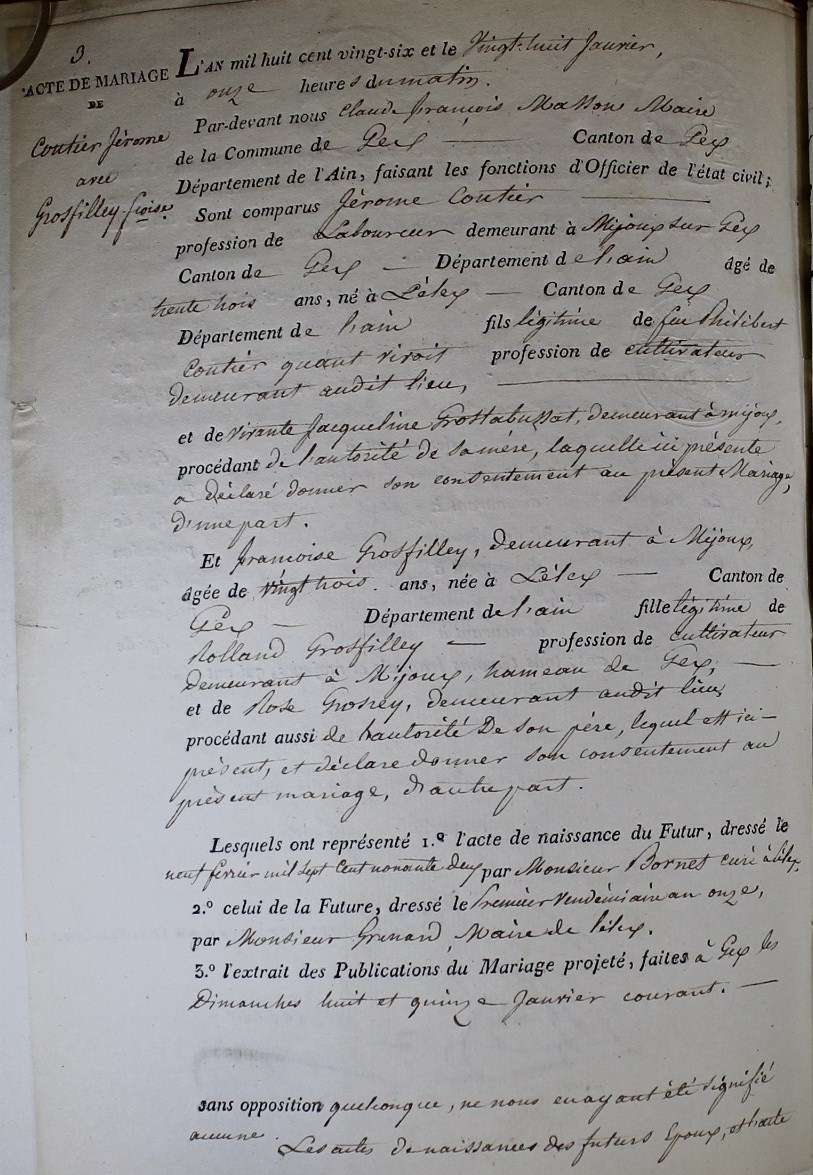 3.
ACTE DE MARIAGE
DE
Coutier Jérome
avec
Grosfilley fçoise.
L'AN mil huit cent vingt-six et le Vingt-huit Janvier,
à onze heures du matin.
Par-devant nous Claude françois Masson Maire
de la Commune de Gex — Canton de Gex
Département de l'Ain, faisant les fonctions d'Officier de l'état civil;
Sont comparus Jérome Coutier —
profession de Laboureur demeurant à Mijoux sur Gex
Canton de Gex — Département de L'ain âgé de
trente trois ans, né à Lélex — Canton de Gex
Département de L'ain fils légitime de feu Philibert
Coutier quant vivoit profession de cultivateur
demeurant audit lieu, —
et de vivante Jacqueline Grostabussat, demeurant à mijoux,
procédant de L'autorité de sa mére, laquelle ici présente
a déclaré donner son consentement au présent Mariage,
d'une part.
Et françoise Grosfilley, demeurant à Mijoux,
âgée de vingt trois. ans, née à Lélex — Canton de
Gex — Département de L'ain fille légitime de
Rolland Grosfilley — profession de cultivateur
demeurant à Mijoux, hameau de Gex, —
et de Rose Grosrey, demeurant audit lieu,
procédant aussi de L'autorité De son pére, lequel est ici —
présent, et déclare donner son consentement au
présent mariage, d'autre part.
Lesquels ont représenté 1.º l'acte de naissance du Futur, dressé le
neuf fevrier mil sept cent nonante deux par Monsieur Bornet curé à Lélex,
2.º celui de la Future, dressé le Premier Vendémiaire an onze,
par Monsieur Grenard, Maire de Lélex.
3.º l'extrait des Publications du Mariage projeté, faites à Gex les
Dimanches huit et quinze Janvier courant. —
sans opposition quelconque, ne nous en ayant été signifié
aucune. Les actes de naissances des futurs Epoux, et